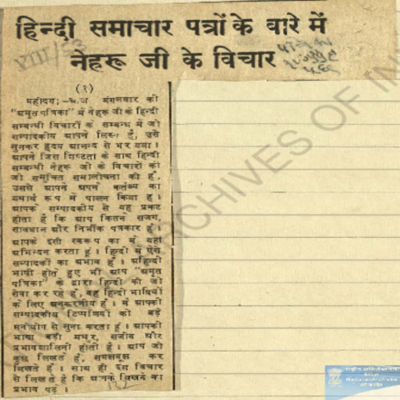 हिन्दी समाचार पत्रों के बारे में
नेहरू जी के विचार
(१)
महोदय,—
मंगलवार की
"अमृत पत्रिका" में नेहरू जी के हिन्दी
सम्बन्धी विचारों के सम्बन्ध में जो
सम्पादकीय आपने लिखा है, उसे
सुनकर हृदय आनन्द से भर गया।
आपने जिस शिष्टता के साथ हिन्दी
सम्बन्धी नेहरू जी के विचारों की
जो समुचित समालोचना की है,
उससे आपने अपने कर्तव्य का
यथार्थ रूप में पालन किया है।
आपके सम्पादकीय से यह प्रकट
होता है कि आप कितने सजग,
सावधान और निर्भीक पत्रकार हैं।
आपके इसी स्वरूप का मैं यहाँ
अभिनन्दन करता हूं। हिन्दी में ऐसे
सम्पादकों का अभाव है। अहिन्दी
भाषी होते हुए भी आप "अमृत
पत्रिका" के द्वारा हिन्दी की जो
सेवा कर रहे हैं, वह हिन्दी भाषियों
के लिए अनुकरणीय है। मैं आपकी
सम्पादकीय टिप्पणियों को बड़े
मनोयोग से सुना करता हूं। आपकी
भाषा बड़ी मधुर, सजीव और
प्रभावशालिनी होती है। आप जो
कुछ लिखते हैं, समझबूझ कर
लिखते हैं। साथ ही इस विचार
से लिखते हैं कि आपके लिखने का
प्रभाव पड़े।
ARCHIVES OF IN